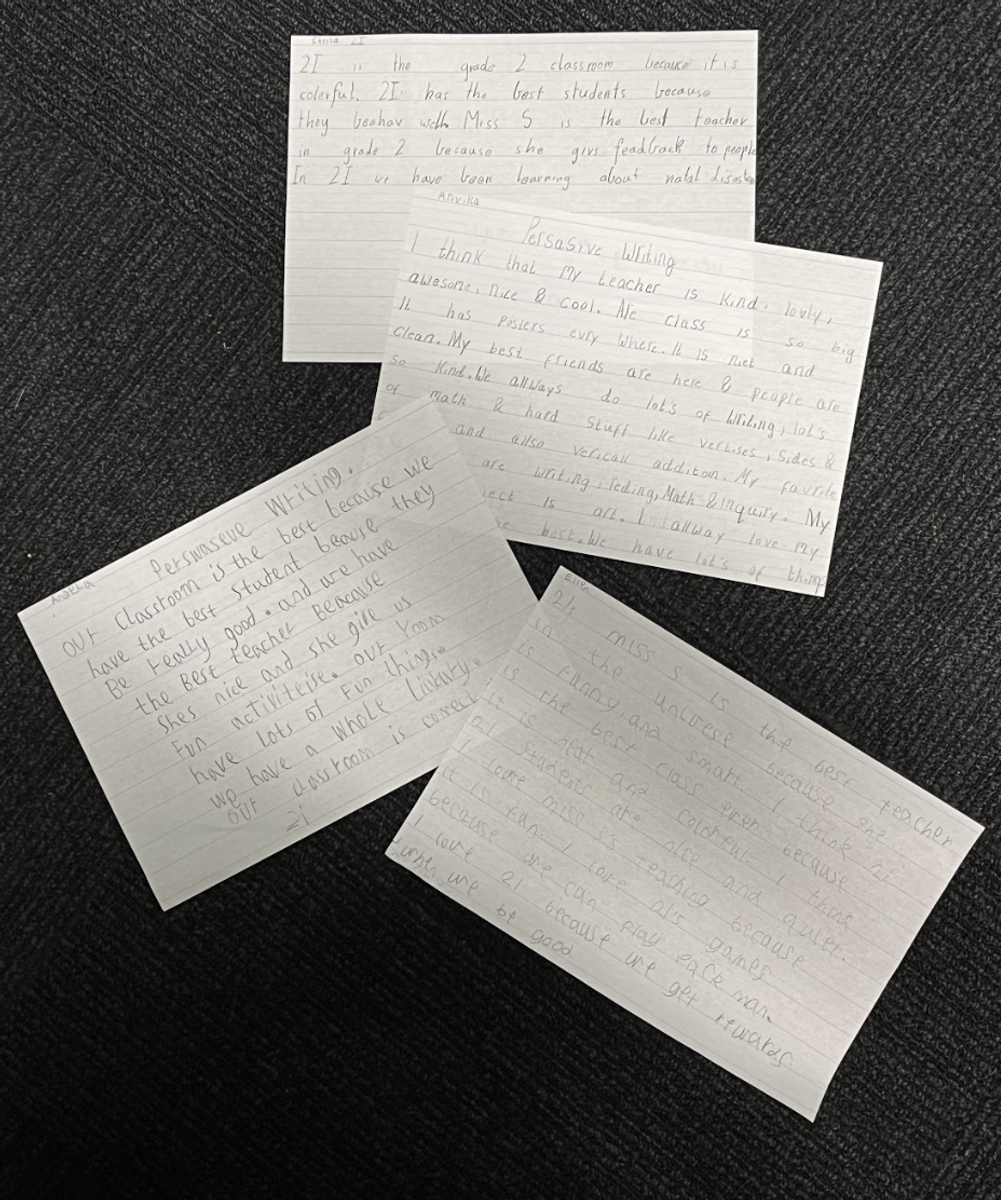 2I
2I is the grade 2 classroom because it is
colerful. 2I has the best students because
they beahav with Miss S is the best teacher
in grade 2 because she givs feadback to people
In 2I we have been learning about natal
Anvika
Persasive Writing
I think that My teacher is Kind, lovly,
awesome, nice & cool. Are class is so big
It has posters evry where. It is niet and
clean. My best friends are here & people are
so Kind. We allways do lot's of writing, lot's
of math & hard stuff like vertises, sides &
and allso vericall additon. My favrite
are writing, reding, Math & Inquiry. My
ject is art. I allway love My
best. We have lot's of things
Perswaseve Writing.
our Classroom is the best because we
have the best Student beause they
Be really good. and we have
the Best teacher Beacause
Shes nice and she give us
Fun activiteise. our room
have lots of Fun thing.
we have a whole Libiary.
our classroom is correct
2i
Ellen
2I's miss s is the best teacher
in the univrese because she
is Funny, and smart I think 2I
is the best class ever because
it is neat and colorful I think
2I students are nice and quiter.
I love miss s's teaching because
it is fun. I love 2I's games
because we can play pack man.
I love 2I because we get rewards
when we be good